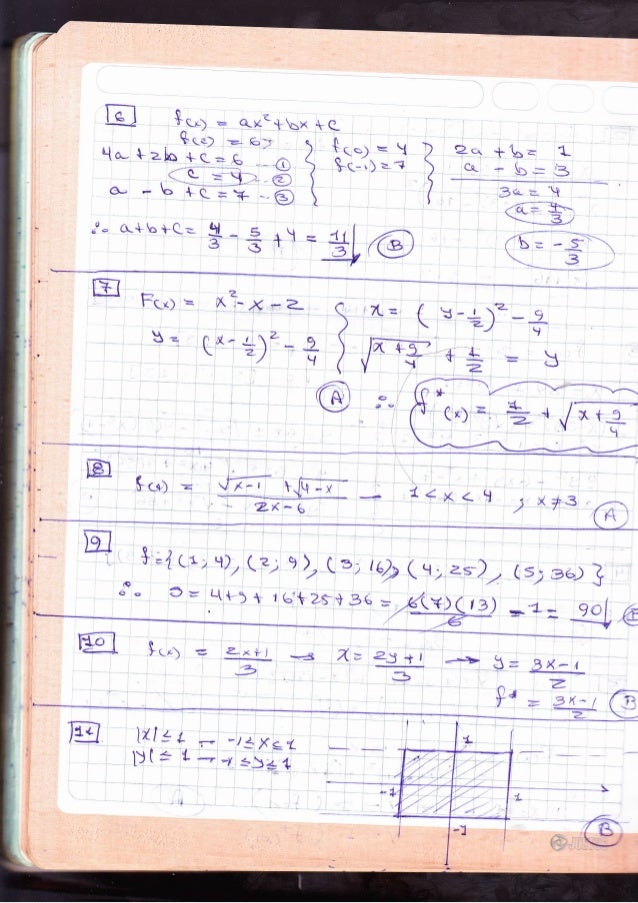 6 f(x) = ax²+bx+c
f(2) = 6
4a+2b+c=6 ...①
c = 4 ...②
a - b + c = 7 ...③
f(0) = 4
f(-1) = 7
2a + b = 1
a - b = 3
3a = 4
a = 4/3
b = -5/3
∴ a+b+c = 4/3 - 5/3 + 4 = 11/3 B
7 F(x) = x²-x-2
y = (x-1/2)² - 9/4
x = (y-1/2)² - 9/4
√(x+9/4) + 1/2 = y
A ∴ f*(x) = 1/2 + √(x+9/4)
8 f(x) = (√x-1 + √4-x)/(2x-6) — 1<x<4 ; x≠3 A
9 f={(1;4),(2;9),(3;16),(4;25),(5;36)}
∴ = 4+9+16+25+36 = 6(7)(13)/6 - 1 = 90
10 f(x) = (2x+1)/3 → x = (2y+1)/3 → y = (3x-1)/2
f* = (3x-1)/2 B
11 |x|≤1 → -1≤x≤1
|y|≤1 → -1≤y≤1
1
-1
1
-1
B